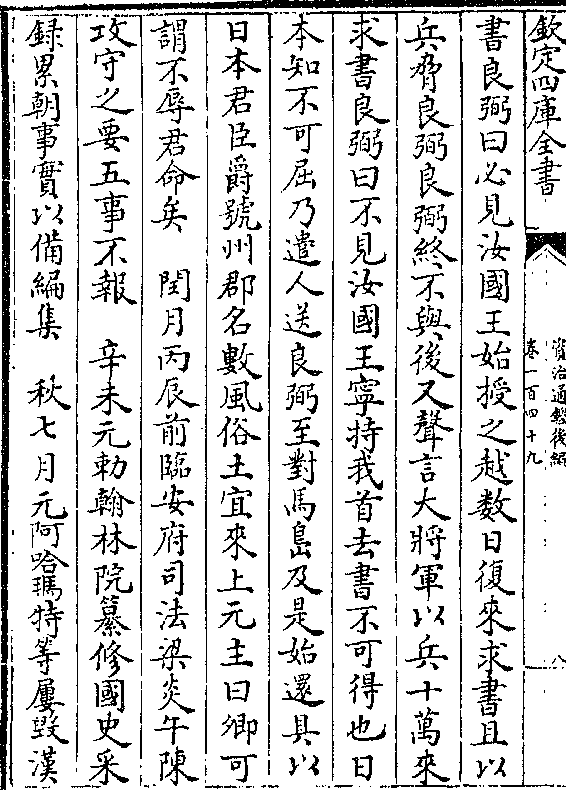 欽定四庫全書
資治通鑑後編
卷一百四十九
八
書良弼曰必見汝國王始授之越数日復來求書且以
兵脅良弼良弼終不與後又聲言大將軍以兵十萬來
求書良弼曰不見汝國王寧持我首去書不可得也日
本知不可屈乃遣人送良弼至對馬島及是始還具以
日本君臣爵號州郡名數風俗土宜來上元主曰卿可
謂不辱君命矣　閏月丙辰前臨安府司法梁炎午陳
攻守之要五事不報　辛未元勅翰林院纂修國史采
録累朝事實以備編集　秋七月元阿哈瑪特等屢毀漢